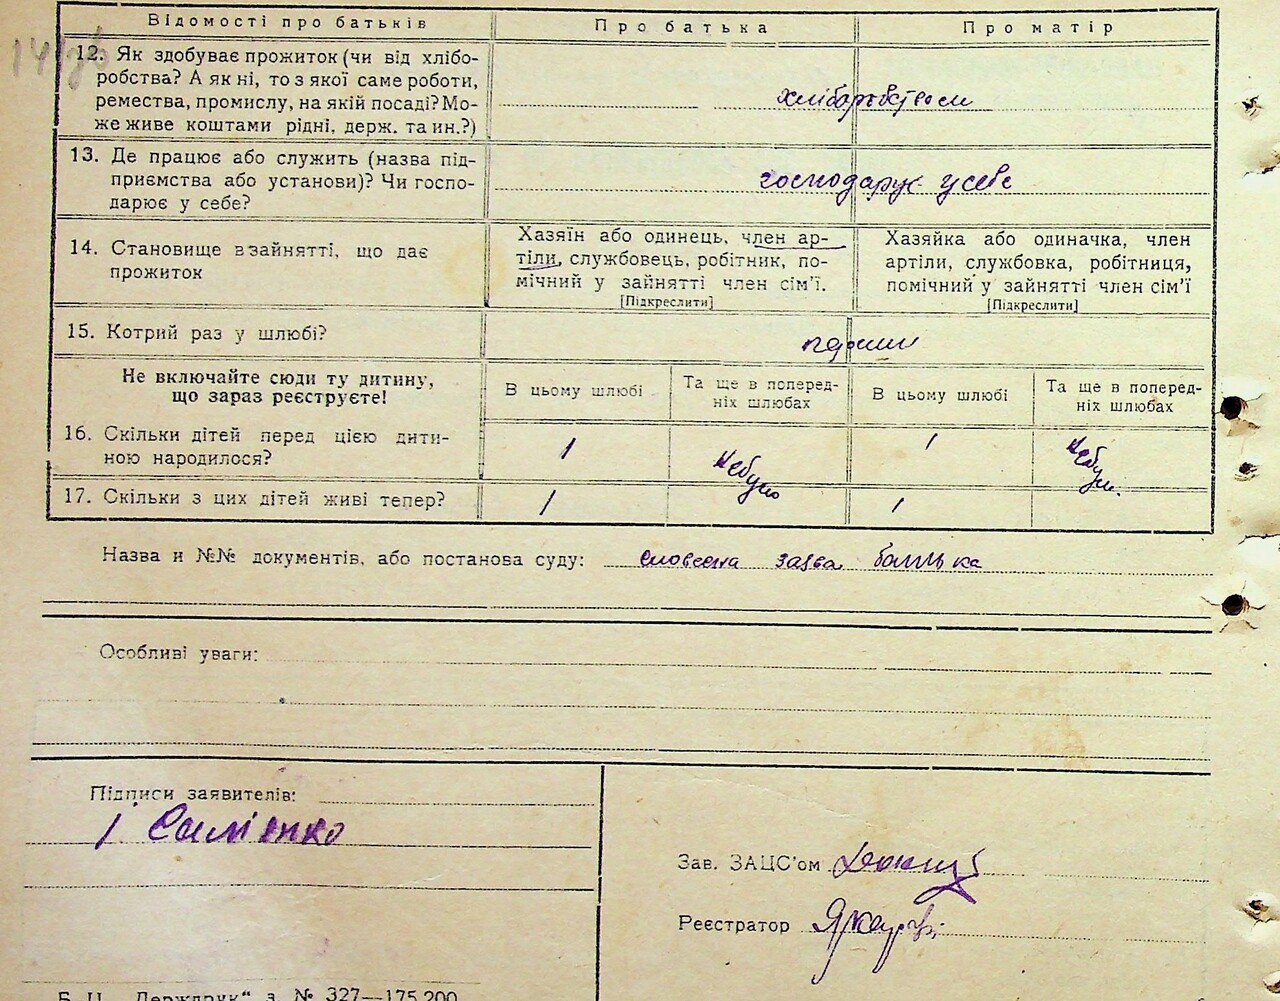 Відомості про батьків Про батька Про матір
12. Як здобуває прожиток (чи від хлібо-
робства? А як ні, то з якої саме роботи,
ремества, промислу, на якій посаді? Мо-
же живе коштами рідні, держ. та ин.?)
хліборобством
13. Де працює або служить (назва під-
приємства або установи)? Чи госпо-
дарює у себе?
господарує у себе
14. Становище в зайнятті, що дає
прожиток
Хазяїн або одинець, член ар-
тіли, службовець, робітник, по-
мічний у зайнятті член сім’ї.
[Підкреслити]
Хазяйка або одиначка, член
артіли, службовка, робітниця,
помічний у зайнятті член сім’ї
[Підкреслити]
15. Котрий раз у шлюбі?
перший
Не включайте сюди ту дитину,
що зараз реєструєте!
В цьому шлюбі
Та ще в поперед-
ніх шлюбах
В цьому шлюбі
Та ще в поперед-
ніх шлюбах
16. Скільки дітей перед цією дити-
ною народилося?
1 небуло 1
17. Скільки з цих дітей живі тепер?
1 1
Назва и №№ документів, або постанова суду: словесна заява батька
Особливі уваги:
Підписи заявителів:
Зав. ЗАЦС’ом
Реєстратор
„Держдрук“ з. № 327—175.200